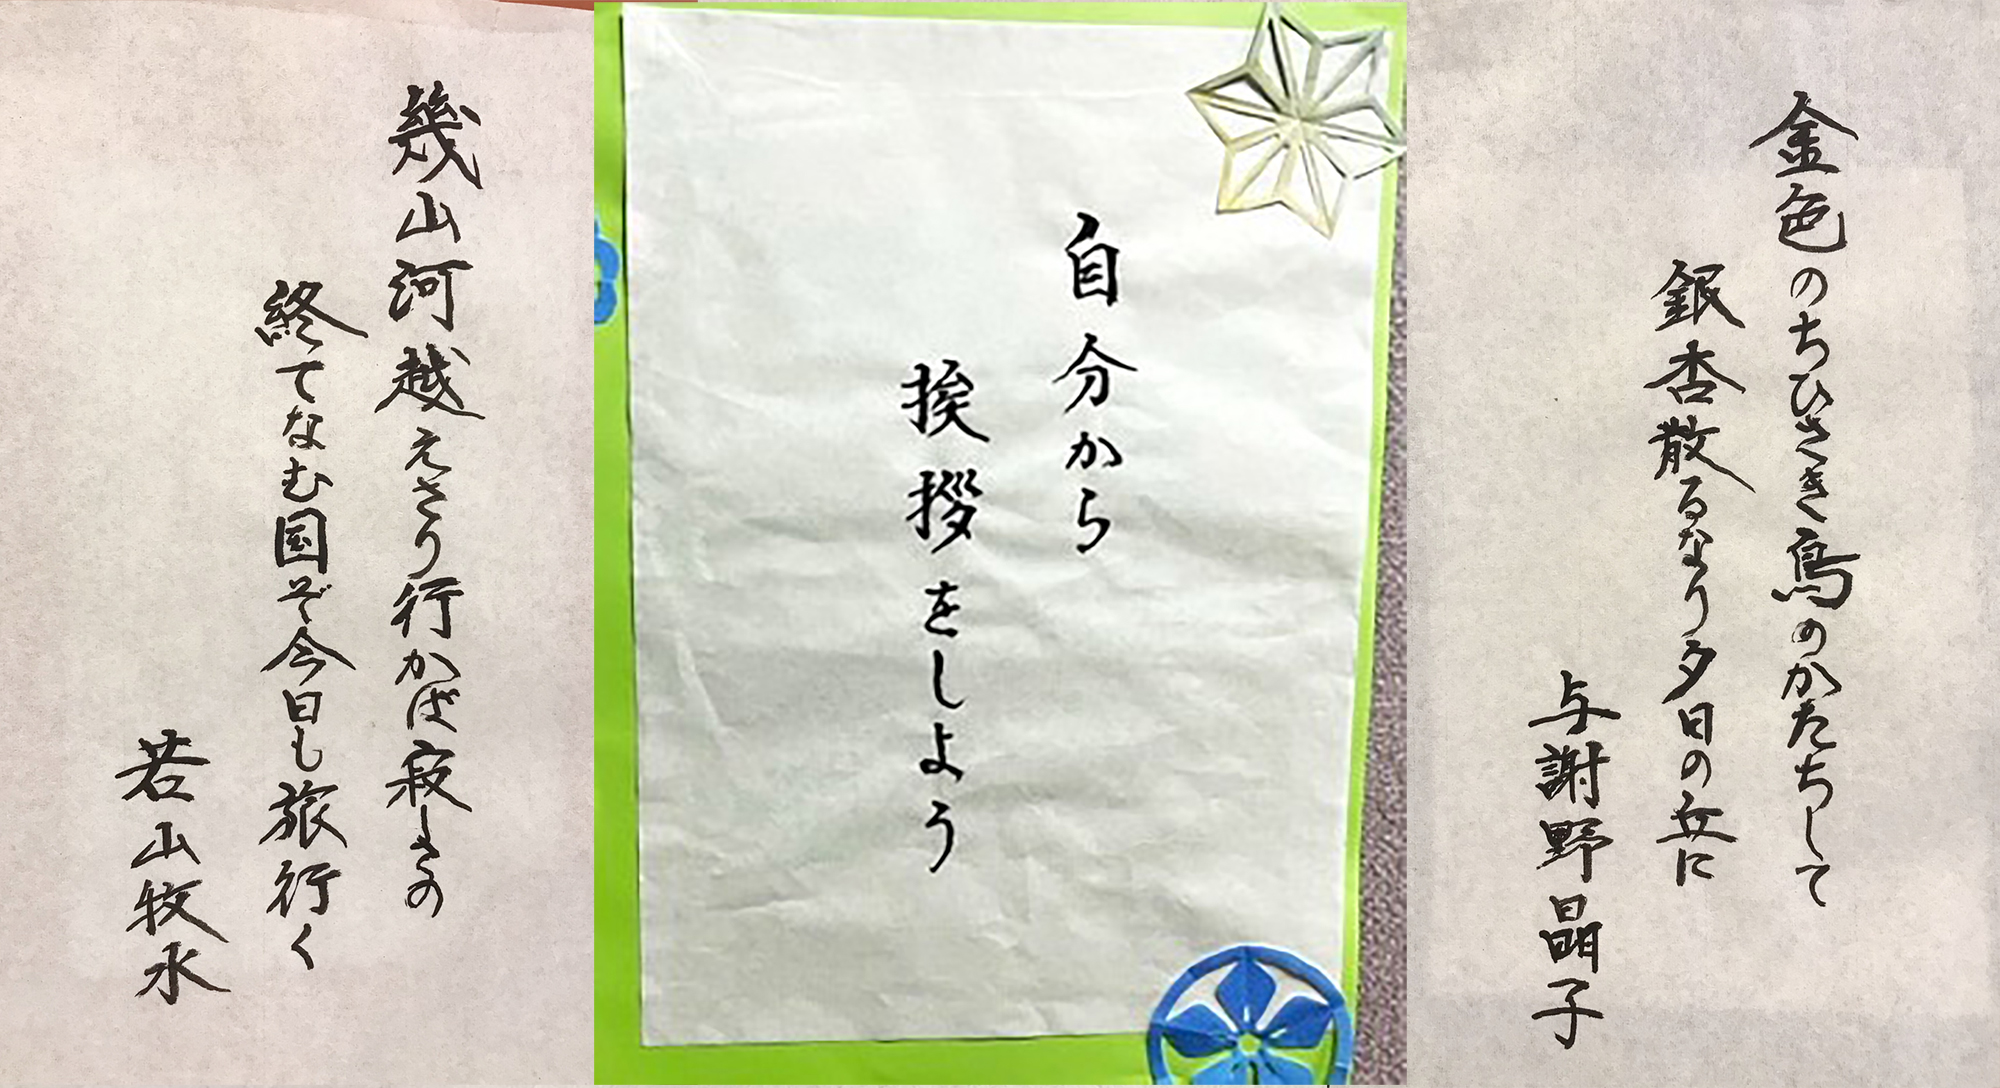 金色のちひさき鳥のかたちして
銀杏散るなり夕日の丘に
与謝野晶子
自分から
挨拶をしよう
幾山河越えさり行かば寂しさの
終てなむ国ぞ今日も旅行く
若山牧水